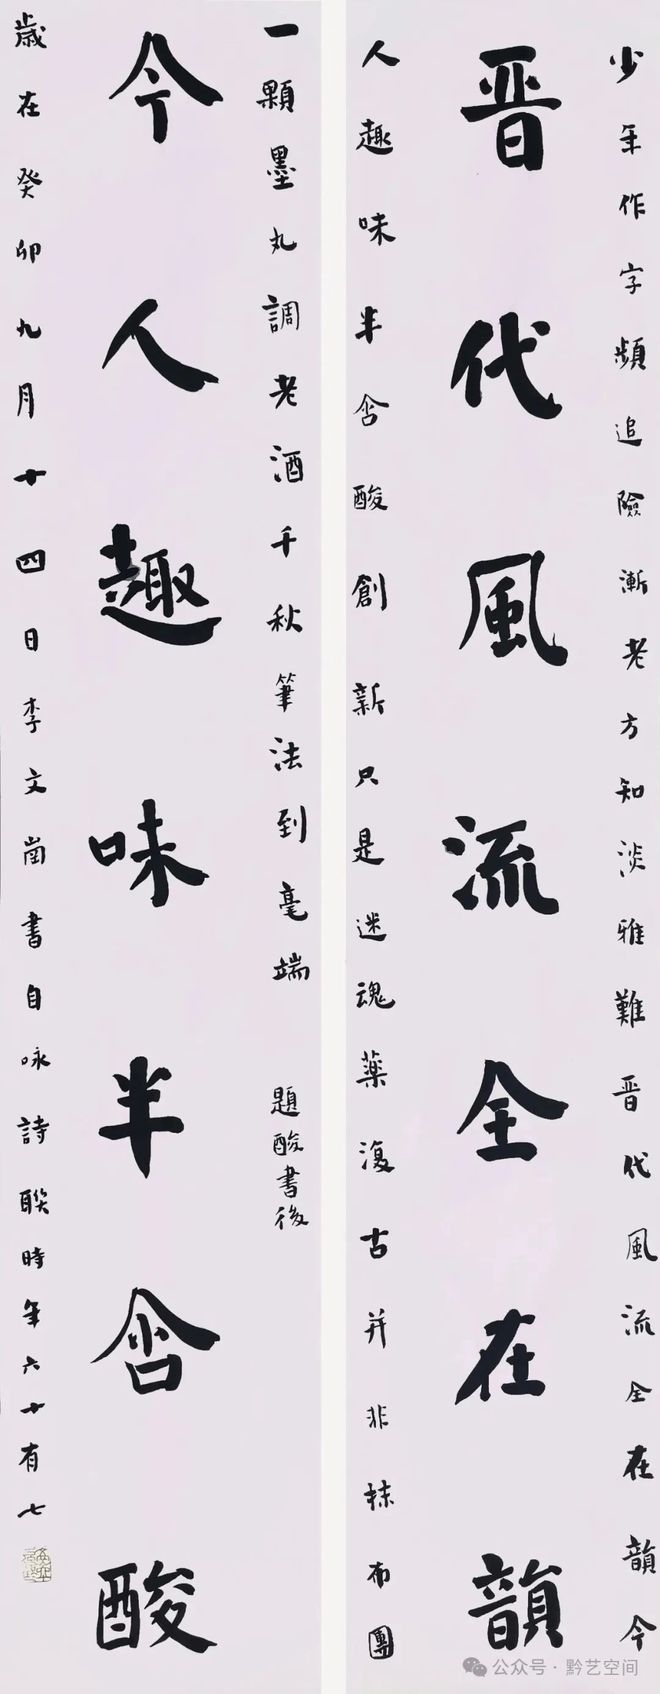 少年作字頻追險漸老方知淡雅難晋代風流全在韻今
晋代風流全在韻
人趣味半含酸創新只是迷魂藥復古并非抹布團
一顆墨丸調老酒千秋筆法到毫端
題酸書後
今人趣味半含酸
歲在癸卯九月十四日李文崗書自咏詩聯時年六十有七
公众号·黔艺空间